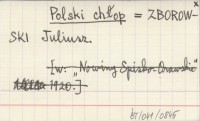 Polski chłop = ZBOROW-
SKI Juliusz.
[w: „Nowiny Spisko-Orawskie"
1920.]